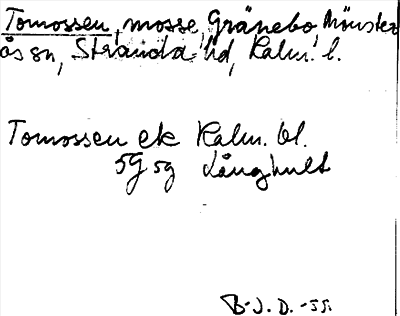 Tomossen, mosse, Gränebo, Mönster
ås sn, Stranda hd, Kalm. l.
Tomossen ek Kalm. bl.
5G 5g Långhult
B-J. D. -55.